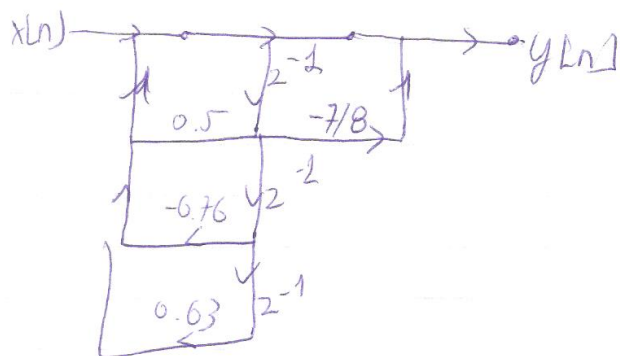 x(n)
y[n]
z⁻¹
0.5
-7/8
z⁻¹
-0.76
0.63
z⁻¹